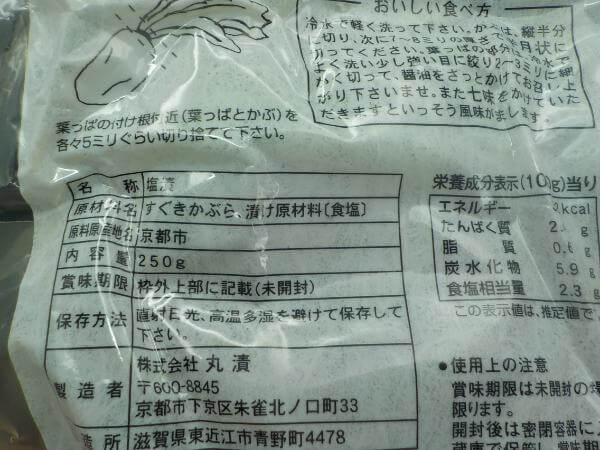 おいしい食べ方
冷水で軽く洗って下さい。かぶは、縦半分
に切り、次に7〜8ミリの厚さで半月状に
切ってください。葉っぱの部分は冷水で
よく洗い少し強い目に絞り2〜3ミリに細
かく切って、醤油をさっとかけてお召し上
がり下さいませ。また七味をかけていた
だきますといっそう風味が増します。
葉っぱの付け根付近(葉っぱとかぶ)を
各々5ミリぐらい切り捨てて下さい。
名 称 塩漬
原材料名 すぐきかぶら、漬け原材料〔食塩〕
原料原産地名 京都市
内容量 250g
賞味期限 枠外上部に記載(未開封)
保存方法 直射日光、高温多湿を避けて保存して
下さい。
製造者 株式会社 丸漬
〒600-8845
京都市下京区朱雀北ノ口町33
造所 滋賀県東近江市青野町4478
栄養成分表示(100g)当り
エネルギー kcal
たんぱく質 2. g
脂質 0.6 g
炭水化物 5.9 g
食塩相当量 2.3 g
この表示値は、推定値で、
●使用上の注意
賞味期限は未開封の場
限ります。
開封後は密閉容器に
蔵庫で保管し、賞味期